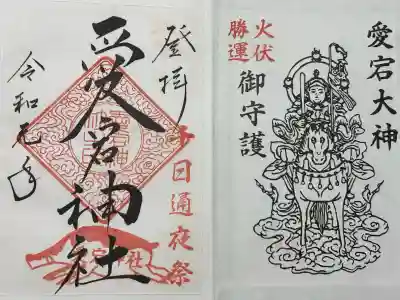 愛宕大神
火伏
勝運
御守護
登拝
愛宕神社
千日通夜祭
令和元年